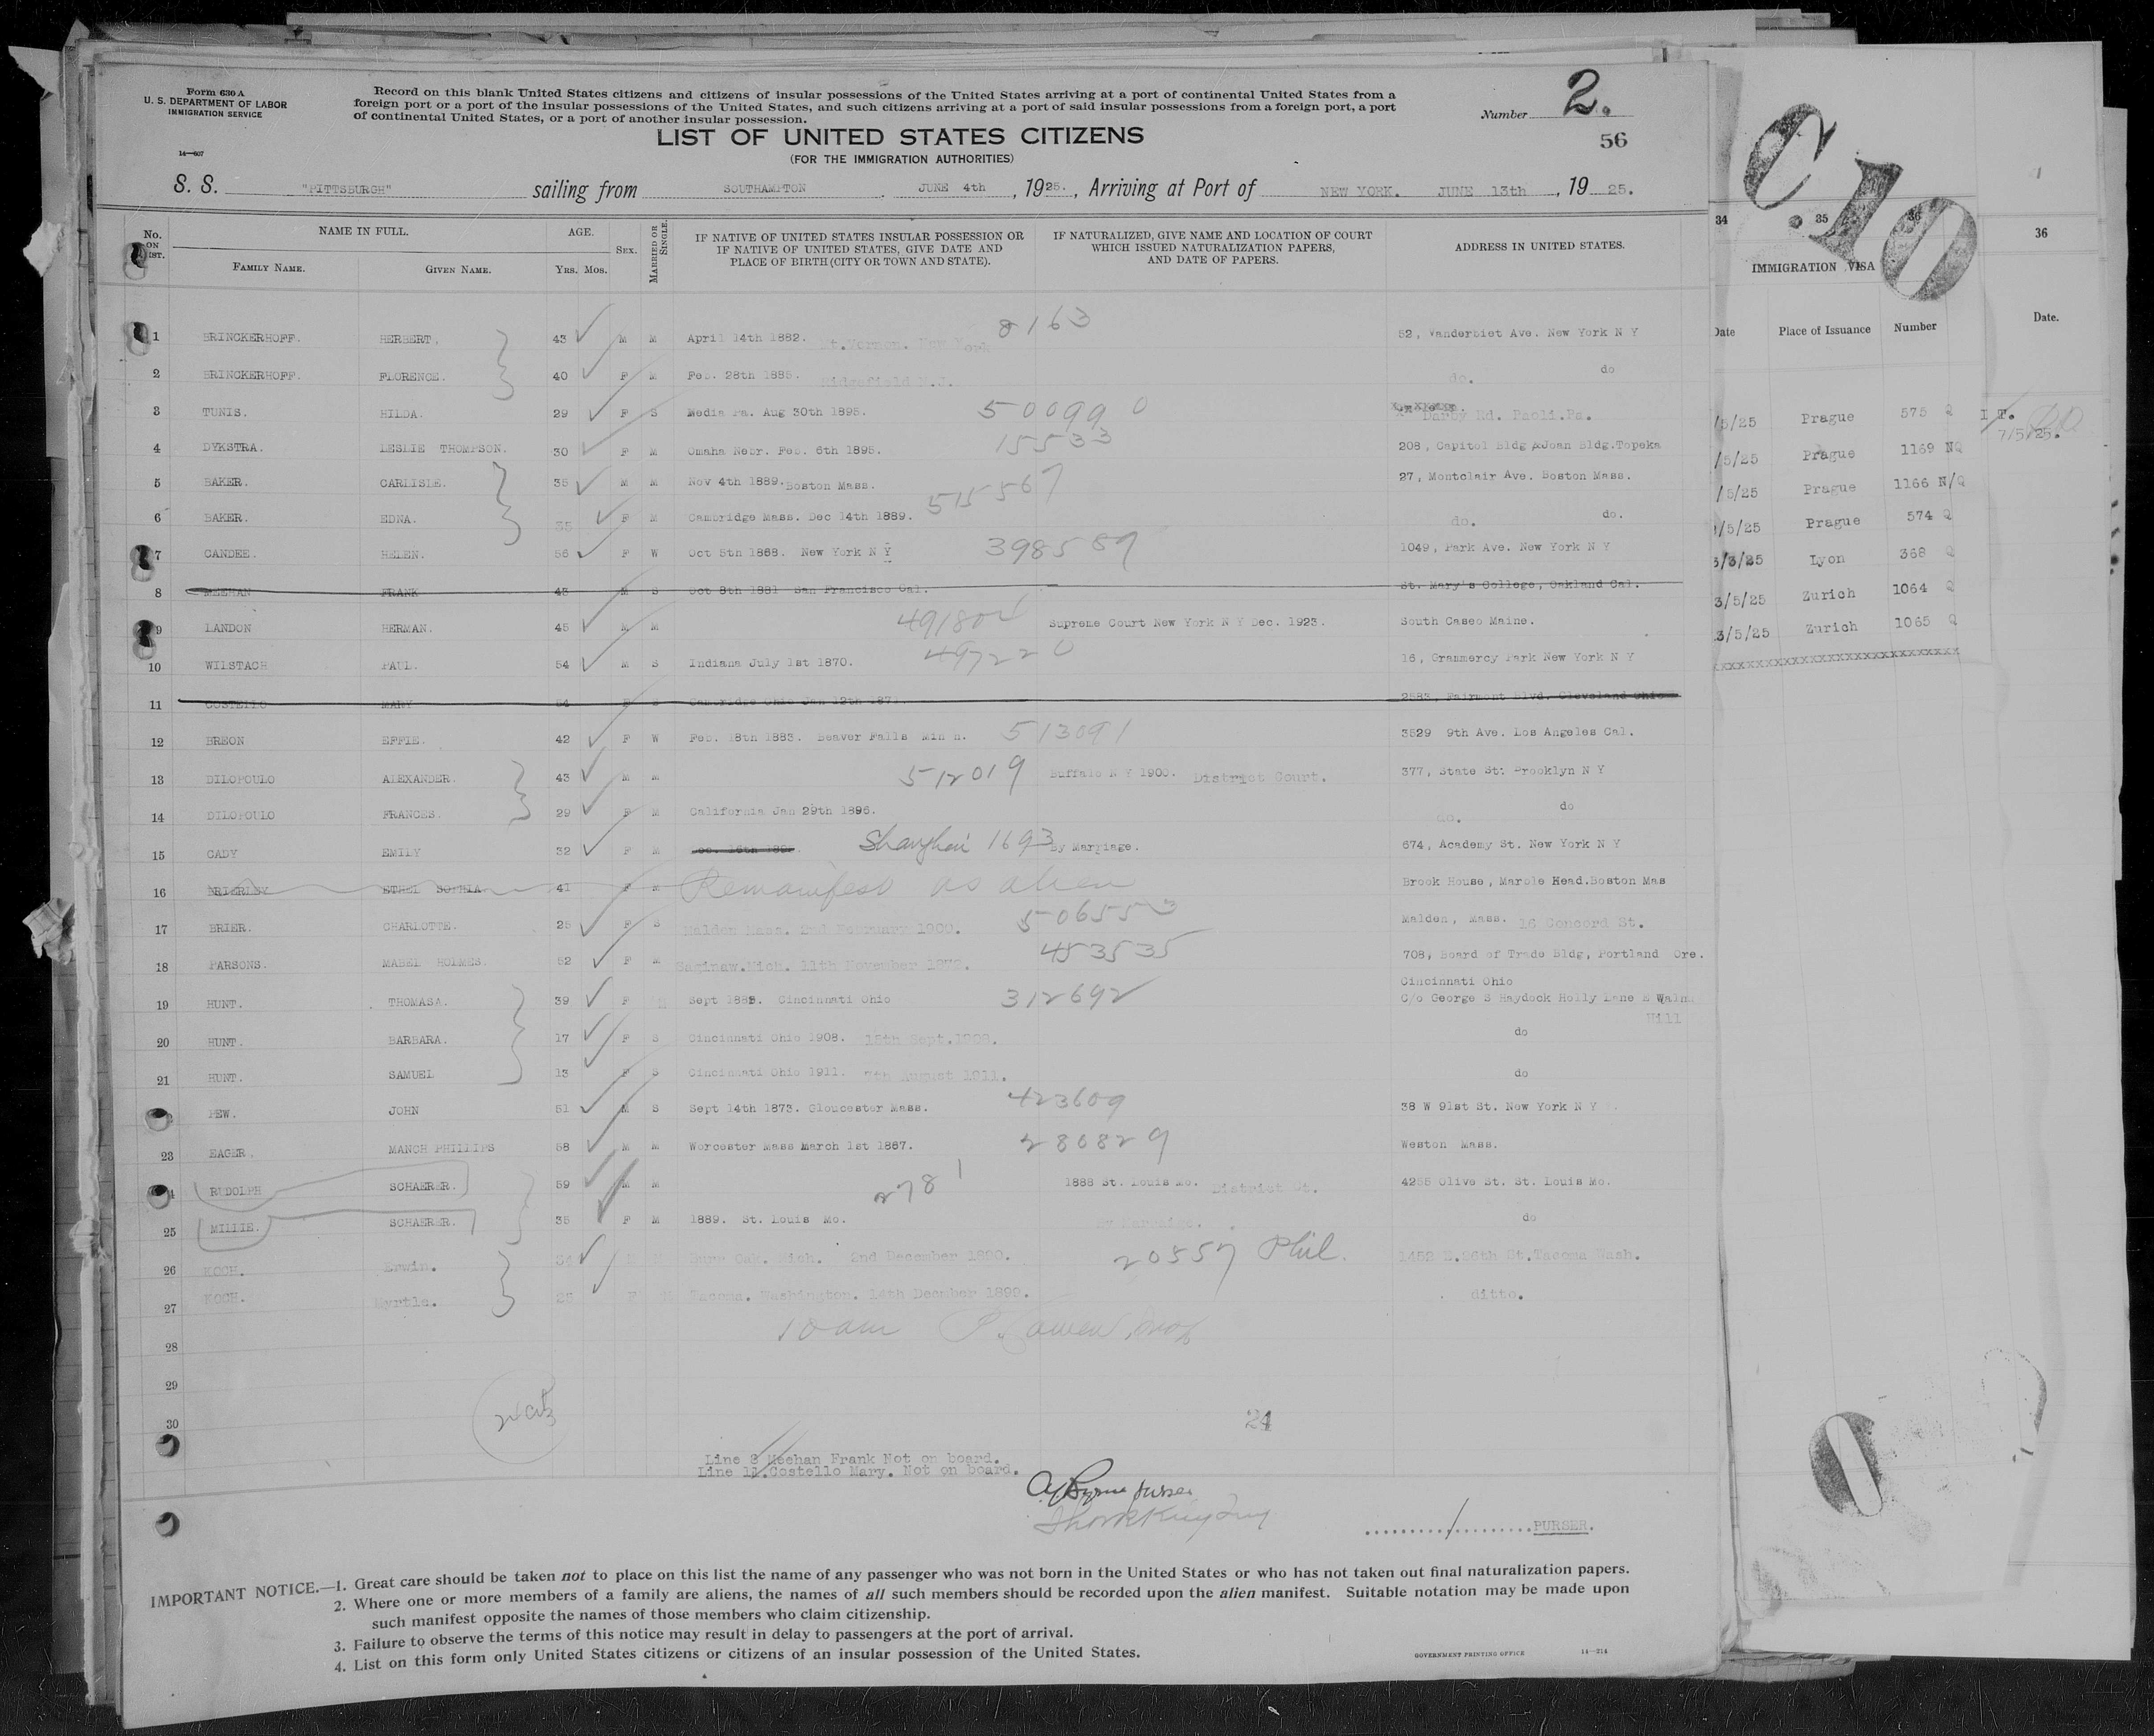 Form 630 A
U. S. DEPARTMENT OF LABOR
IMMIGRATION SERVICE
Record on this blank United States citizens and citizens of insular possessions of the United States arriving at a port of continental United States from a
foreign port or a port of the insular possessions of the United States, and such citizens arriving at a port of said insular possessions from a foreign port, a port
of continental United States, or a port of another insular possession.
Number 2.
56
LIST OF UNITED STATES CITIZENS
(FOR THE IMMIGRATION AUTHORITIES)
14—607
S. S. "PITTSBURGH" sailing from SOUTHAMPTON JUNE 4th, 1925., Arriving at Port of NEW YORK. JUNE 13th, 19 25.
No. ON LIST.
NAME IN FULL.
FAMILY NAME. GIVEN NAME.
AGE.
Yrs. Mos.
SEX.
MARRIED OR SINGLE.
IF NATIVE OF UNITED STATES INSULAR POSSESSION OR
IF NATIVE OF UNITED STATES, GIVE DATE AND
PLACE OF BIRTH (CITY OR TOWN AND STATE).
IF NATURALIZED, GIVE NAME AND LOCATION OF COURT
WHICH ISSUED NATURALIZATION PAPERS,
AND DATE OF PAPERS.
ADDRESS IN UNITED STATES.
1 BRINCKERHOFF. HERBERT. 43 M M April 14th 1882. Mt.Vernon. New York 8163 52, Vanderbiet Ave. New York N Y
2 BRINCKERHOFF. FLORENCE. 40 F M Feb. 28th 1885. Ridgefield N.J. do. do
3 TUNIS. HILDA. 29 F S Media Pa. Aug 30th 1895. 500990 Darby Rd. Paoli.Pa.
4 DYKSTRA. LESLIE THOMPSON. 30 F M Omaha Nebr. Feb. 6th 1895. 15533 208, Capitol Bldg &Joan Bldg.Topeka
5 BAKER. CARLISLE. 35 M M Nov 4th 1889.Boston Mass. 515567 27, Montclair Ave. Boston Mass.
6 BAKER. EDNA. 35 F M Cambridge Mass. Dec 14th 1889. do. do.
7 CANDEE. HELEN. 56 F W Oct 5th 1868. New York N Y 398587 1049, Park Ave. New York N Y
8 MEEHAN FRANK 43 M S Oct 8th 1881 San Francisco Cal. St. Mary's College, Oakland Cal.
9 LANDON HERMAN. 45 M M 491802 Supreme Court New York N Y Dec. 1923. South Casco Maine.
10 WILSTACH PAUL. 54 M S Indiana July 1st 1870. 497220 16, Grammercy Park New York N Y
11 COSTELLO MARY 54 F S Cambridge Ohio Jan 12th 1871 2583, Fairmont Blvd. Cleveland Ohio
12 BREON EFFIE. 42 F W Feb. 18th 1883. Beaver Falls Minn. 513091 3529 9th Ave. Los Angeles Cal.
13 DILOPOULO ALEXANDER. 43 M M 512019 Buffalo N Y 1900. District Court. 377, State St: Brooklyn N Y
14 DILOPOULO FRANCES. 29 F M California Jan 29th 1896. do. do
15 CADY EMILY 32 F M Shanghai 1693 By Marriage. 674, Academy St. New York N Y
16 BRIERLEY ETHEL SOPHIA 41 F M Remanifest as alien Brook House, Marble Head.Boston Mas
17 BRIER. CHARLOTTE. 25 F S Malden Mass. 2nd February 1900. 506553 Malden, Mass. 16 Concord St.
18 PARSONS. MABEL HOLMES. 52 F M Saginaw.Mich. 11th November 1872. 453535 708, Board of Trade Bldg, Portland Ore.
19 HUNT. THOMASA. 39 F Sept 1885. Cincinnati Ohio 312692 Cincinnati Ohio
C/o George S Haydock Holly Lane E Waln
Hill
20 HUNT. BARBARA. 17 F S Cincinnati Ohio 1908. 15th Sept.1908. do
21 HUNT. SAMUEL 13 F S Cincinnati Ohio 1911. 7th August 1911. do
PEW. JOHN 51 M S Sept 14th 1873. Gloucester Mass. 423609 38 W 91st St. New York N Y
23 EAGER. MANCH PHILLIPS 58 M M Worcester Mass March 1st 1867. 280829 Weston Mass.
RUDOLPH SCHAERER. 59 M M 2781 1888 St. Louis Mo. District Ct. 4255 Olive St. St. Louis Mo.
25 MILLIE. SCHAERER. 35 F M 1889. St. Louis Mo. By Marriage. do
26 KOCH. Erwin. 34 M M Burr Oak. Mich. 2nd December 1890. 20857 Phil. 1452 E.26th St.Tacoma Wash.
27 KOCH. Myrtle. 25 F M Tacoma. Washington. 14th December 1899. ditto.
10 am
28
29
30
24
Line 8 Meehan Frank Not on board.
Line 11.Costello Mary. Not on board.
Byrne purser
PURSER.
IMPORTANT NOTICE.—1. Great care should be taken not to place on this list the name of any passenger who was not born in the United States or who has not taken out final naturalization papers.
2. Where one or more members of a family are aliens, the names of all such members should be recorded upon the alien manifest. Suitable notation may be made upon
such manifest opposite the names of those members who claim citizenship.
3. Failure to observe the terms of this notice may result in delay to passengers at the port of arrival.
4. List on this form only United States citizens or citizens of an insular possession of the United States.
GOVERNMENT PRINTING OFFICE 14—214
34 35 36
IMMIGRATION VISA
Date Place of Issuance Number
/5/25 Prague 575 Q
/5/25 Prague 1169 NQ
/5/25 Prague 1166 N/Q
/5/25 Prague 574 Q
3/3/25 Lyon 368 Q
3/5/25 Zurich 1064 Q
3/5/25 Zurich 1065 Q
xxxxxxxxxxxxxxxxxxxxxxxxxxxx
C.10
1
36
Date.
I T.
7/5/25.
0